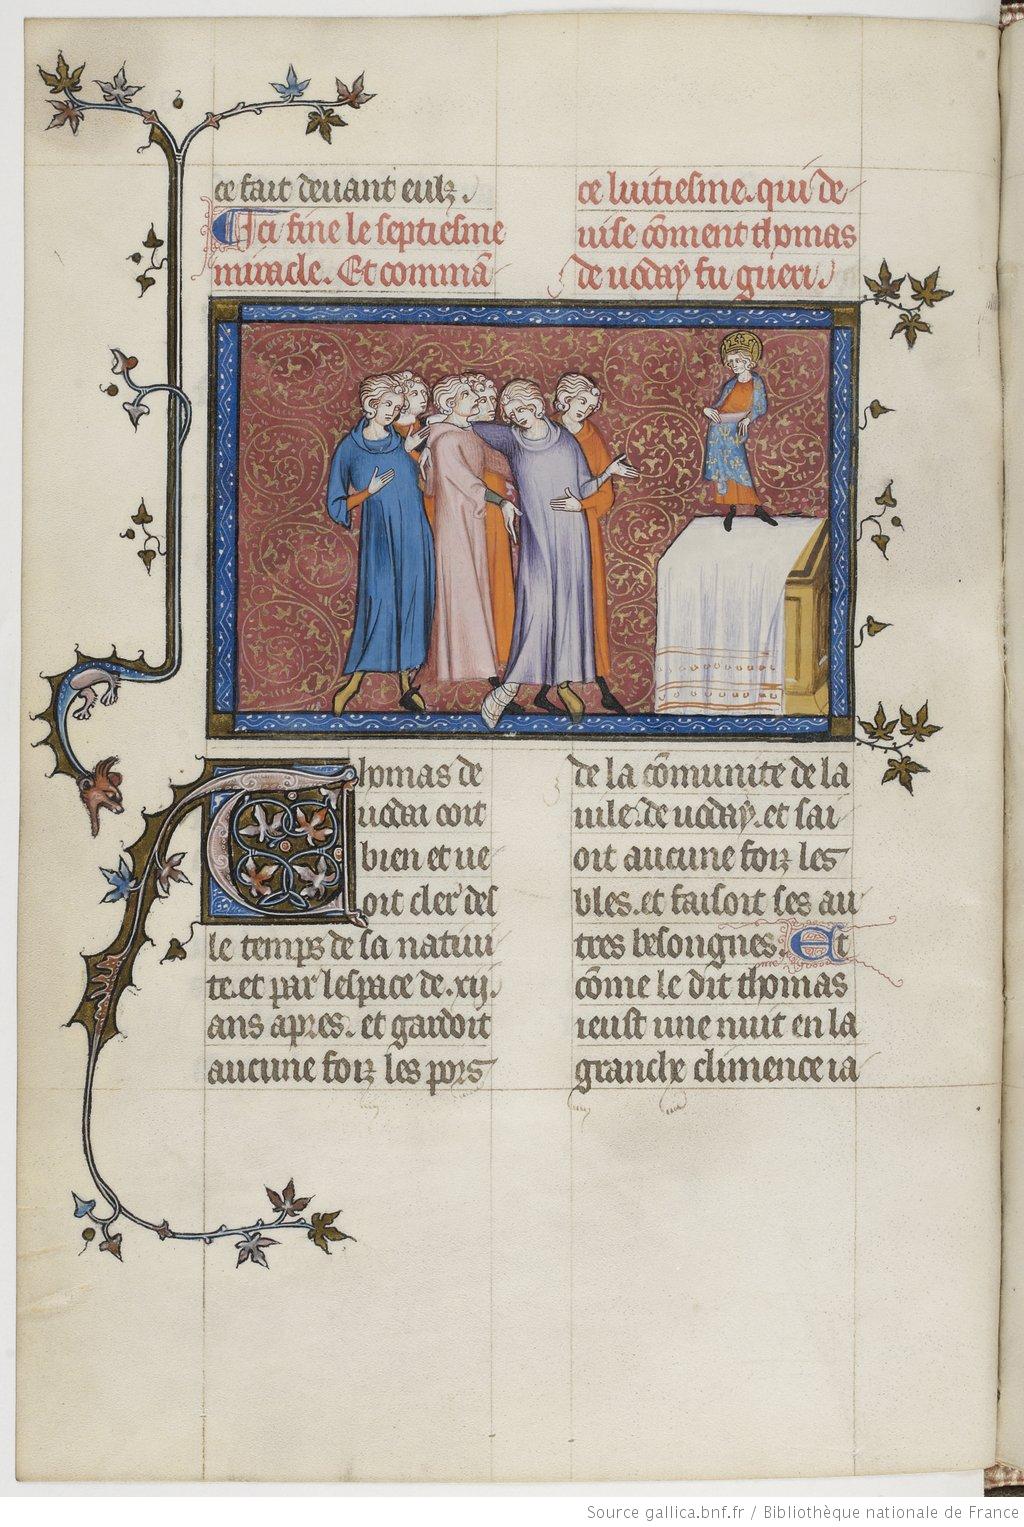 ce fait deuant eulz.
Ici fine le septiesme
miracle. Et commā
ce luitiesme. qui de
uise cōment thomas
de uoday fu gueri.
Thomas de
uodai ooit
bien et ue
oit cler des
le temps de sa natiui
te. et par lespace de .xij.
ans apres. et gardoit
aucune foiz les pors
de la cōmunite de la
uile. de uoday. et sai
oit aucune foiz les
bles. et faisoit ses au
tres besongnes. Et
cōme le dit thomas
ieust une nuit en la
granche climence ia
Source gallica.bnf.fr / Bibliothèque nationale de France